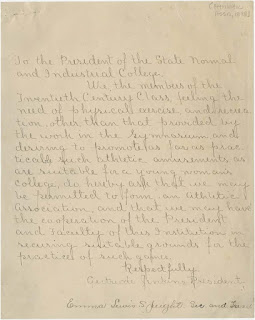 To the President of the State Normal
and Industrial College.
We the members of the
Twentieth Century Class feeling the
need of physical exercise and recrea-
tion, other than that provided by
the work in the Gymnasium and
desiring to promote as far as prac-
ticable such athletic amusements as
are suitable for a young woman's
College, do hereby ask that we may
be permitted to form an Athletic
Association and that we may have
the cooperation of the President
and Faculty of this Institution in
securing suitable grounds for the
practice of such games.
Respectfully
Gertrude President.
Emma Lewis Speight Sec and Treas